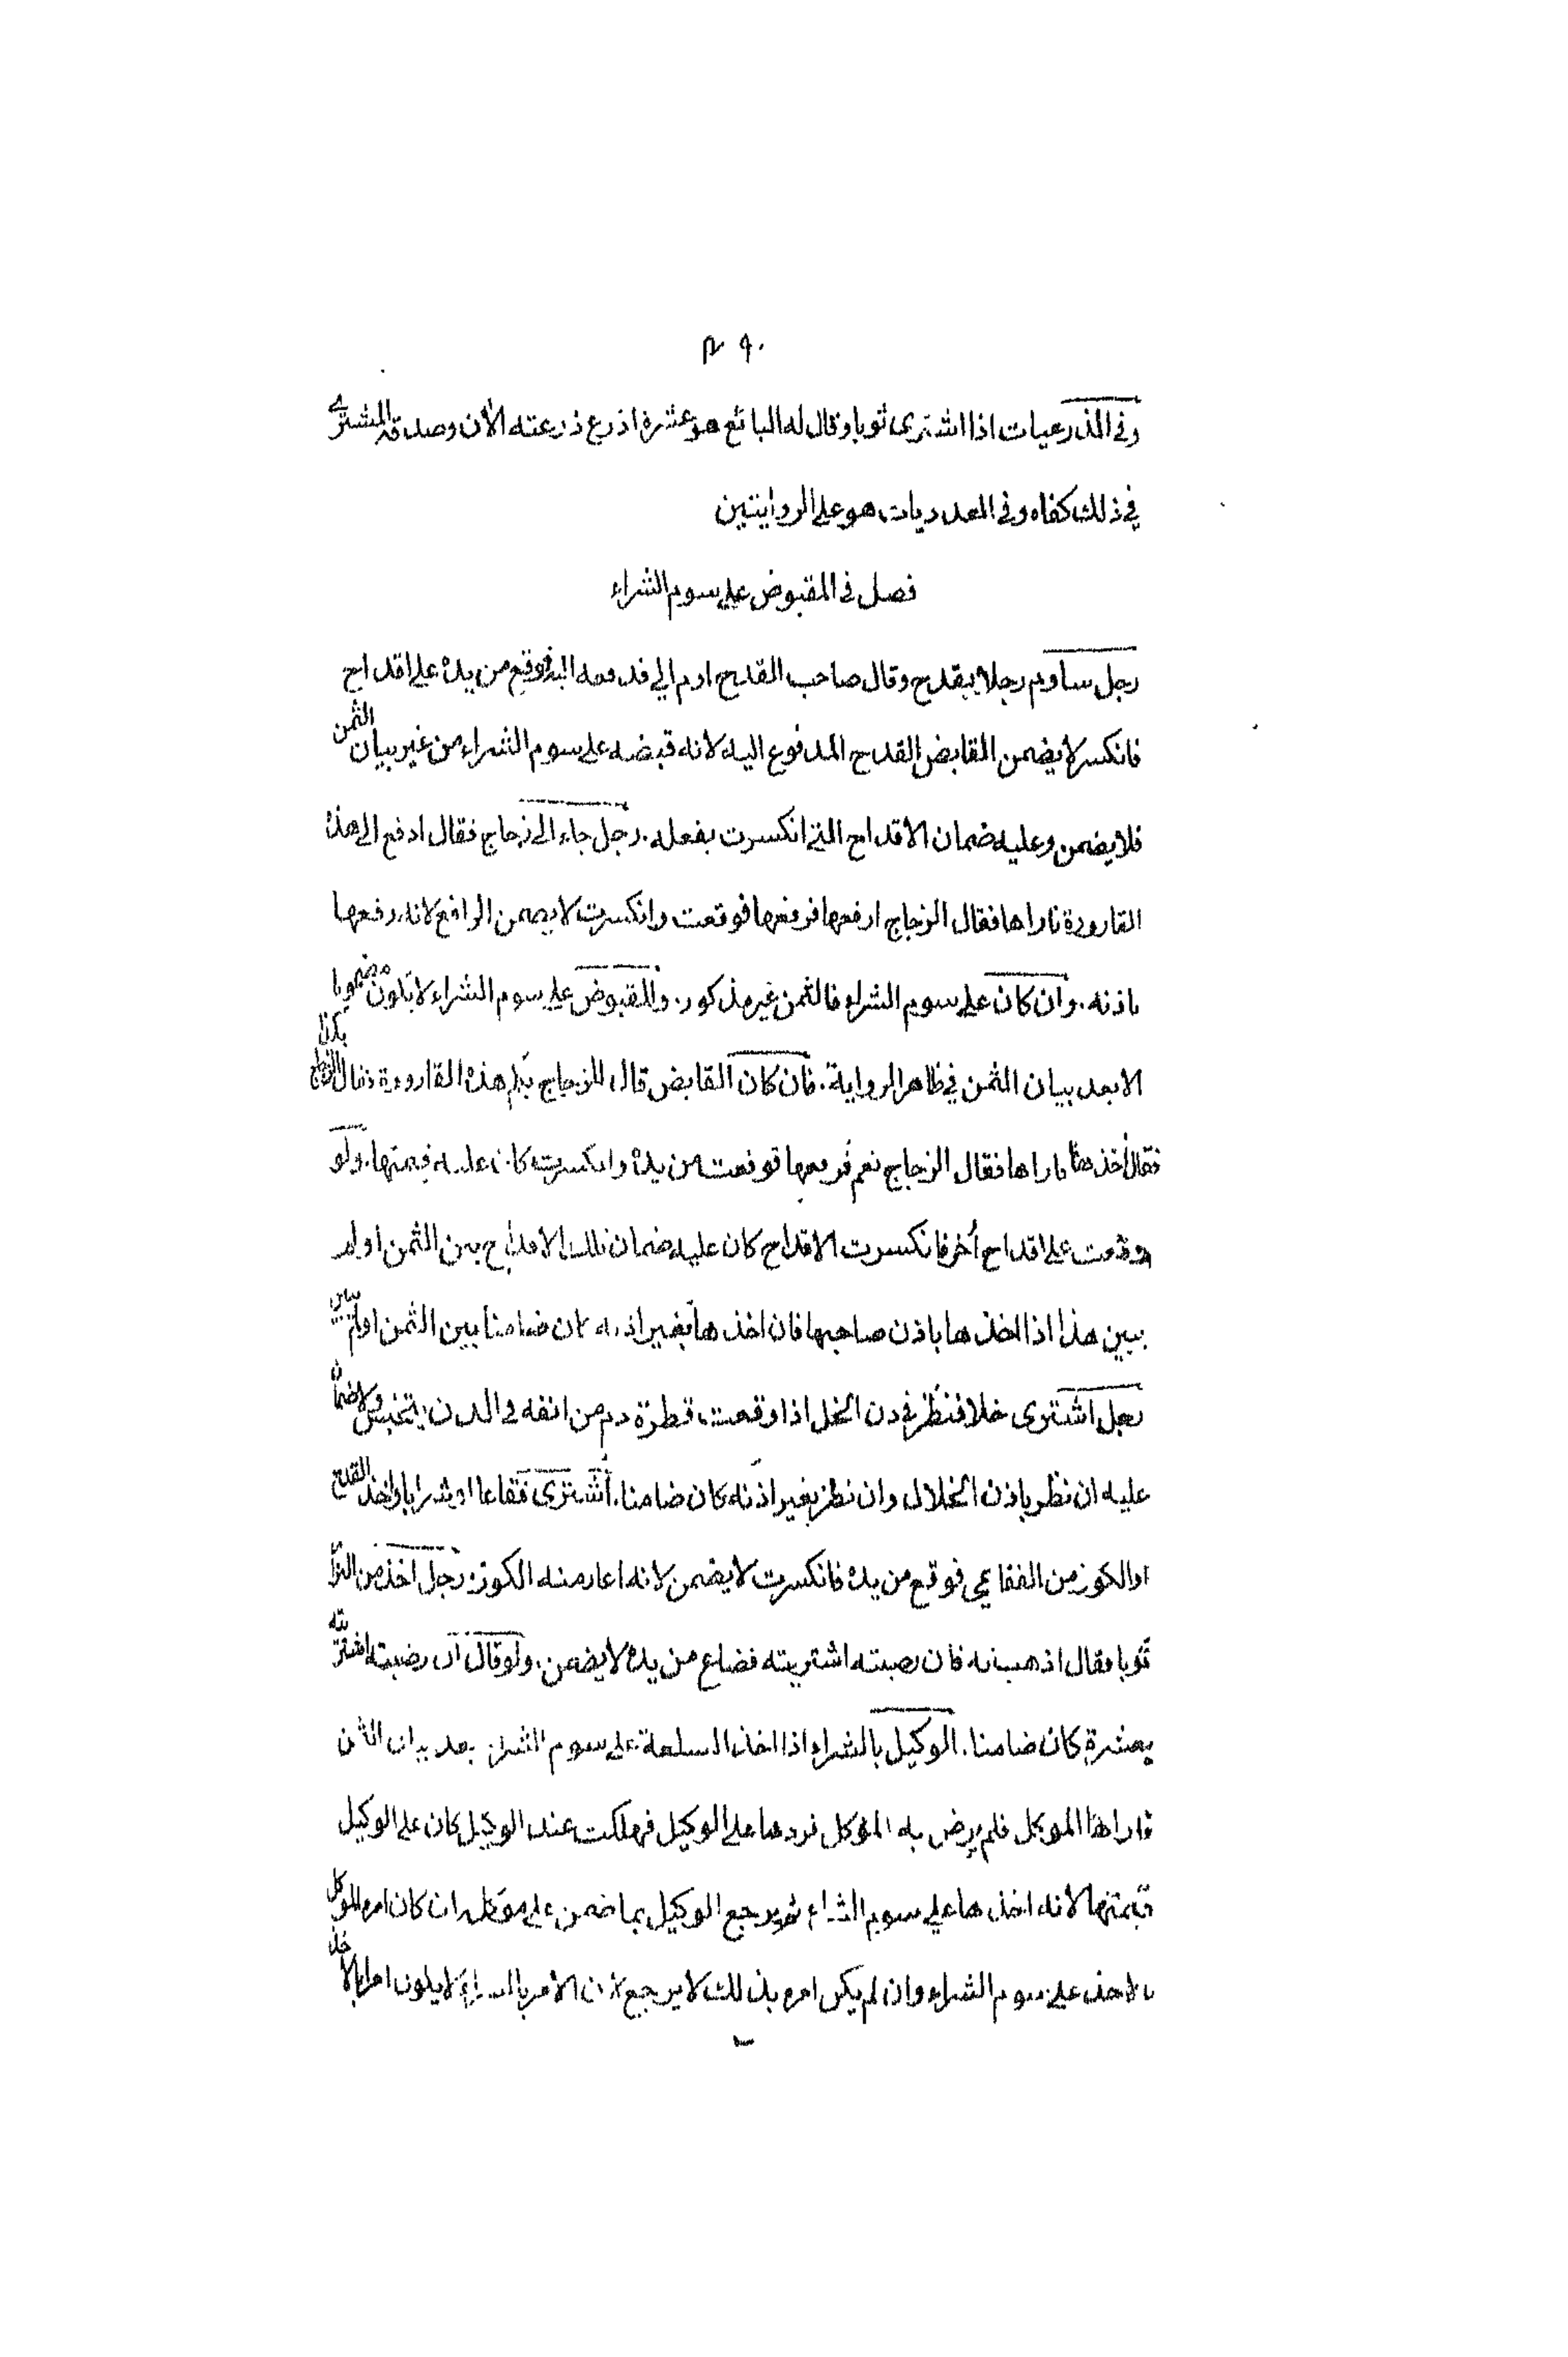 ٤٩٠
وفى المذرعيات اذا اشترى ثوبا وقال له البائع هو عشرة اذرع ذرعته الأن وصدقه المشترى
في ذلك كفاه وفى المعدديات هو على الروايتين
فصل فى المقبوض على سوم الشراء
رجل ساوم رجلا بقدح وقال صاحب القدح ادم الي فدفعه اليه فوقع من يده على اقداح
فانكسر لا يضمن القابض القدح المدفوع اليه لانه قبضه على سوم الشراء من غير بيان الثمن
فلا يضمن وعليه ضمان الاقداح التى انكسرت بفعله. رجل جاء الى زجاج فقال ادفع الى هذه
القارورة فاراها فقال الزجاج ارفعها فرفعها فوقعت وانكسرت لا يضمن الرافع لانه رفعها
باذنه. وان كان على سوم الشراء فالثمن غير مذكور. والمقبوض على سوم الشراء لا يكون مضمونا
الا بعد بيان الثمن في ظاهر الرواية. فان كان القابض قال للزجاج بكم هذه القارورة فقال الزجاج بكذا
فقال أخذها فاراها فقال الزجاج نعم فرفعها فوقعت من يده وانكسرت كان عليه قيمتها. ولو
وقعت على اقداح أخر فانكسرت الاقداح كان عليه ضمان تلك الاقداح بين الثمن اولم
يبين هذا اذا اخذها باذن صاحبها فان اخذها بغير اذنه كان ضامنا بين الثمن اولم يبين
رجل اشترى خلا فنظر في دن الخل اذا وقعت قطرة دم من انفه فى الدن يتنجس ولا ضمان
عليه ان نظر باذن الخلال وان نظر بغير اذنه كان ضامنا. أشترى فقاعا او شرابا واخذ القدح
او الكوز من الفقاعى فوقع من يده فانكسرت لا يضمن لانه اعار منه الكوز. رجل اخذ من البزاز
ثوبا فقال اذهب به فان رضيته اشتريته فضاع من يده لا يضمن. ولو قال ان رضيته اشتريته
بعشرة كان ضامنا. الوكيل بالشراء اذا اخذ السلعة على سوم الشراء بعد بيان الثمن
فاراها الموكل فلم يرض به الموكل فردها على الوكيل فهلكت عند الوكيل كان على الوكيل
قيمتها لانه اخذها على سوم الشراء ثم يرجع الوكيل بما ضمن على موكله ان كان امره الموكل
بالاخذ على سوم الشراء وان لم يكن امره بذلك لا يرجع لان الأمر بالشراء لا يكون امرا بالاخذ